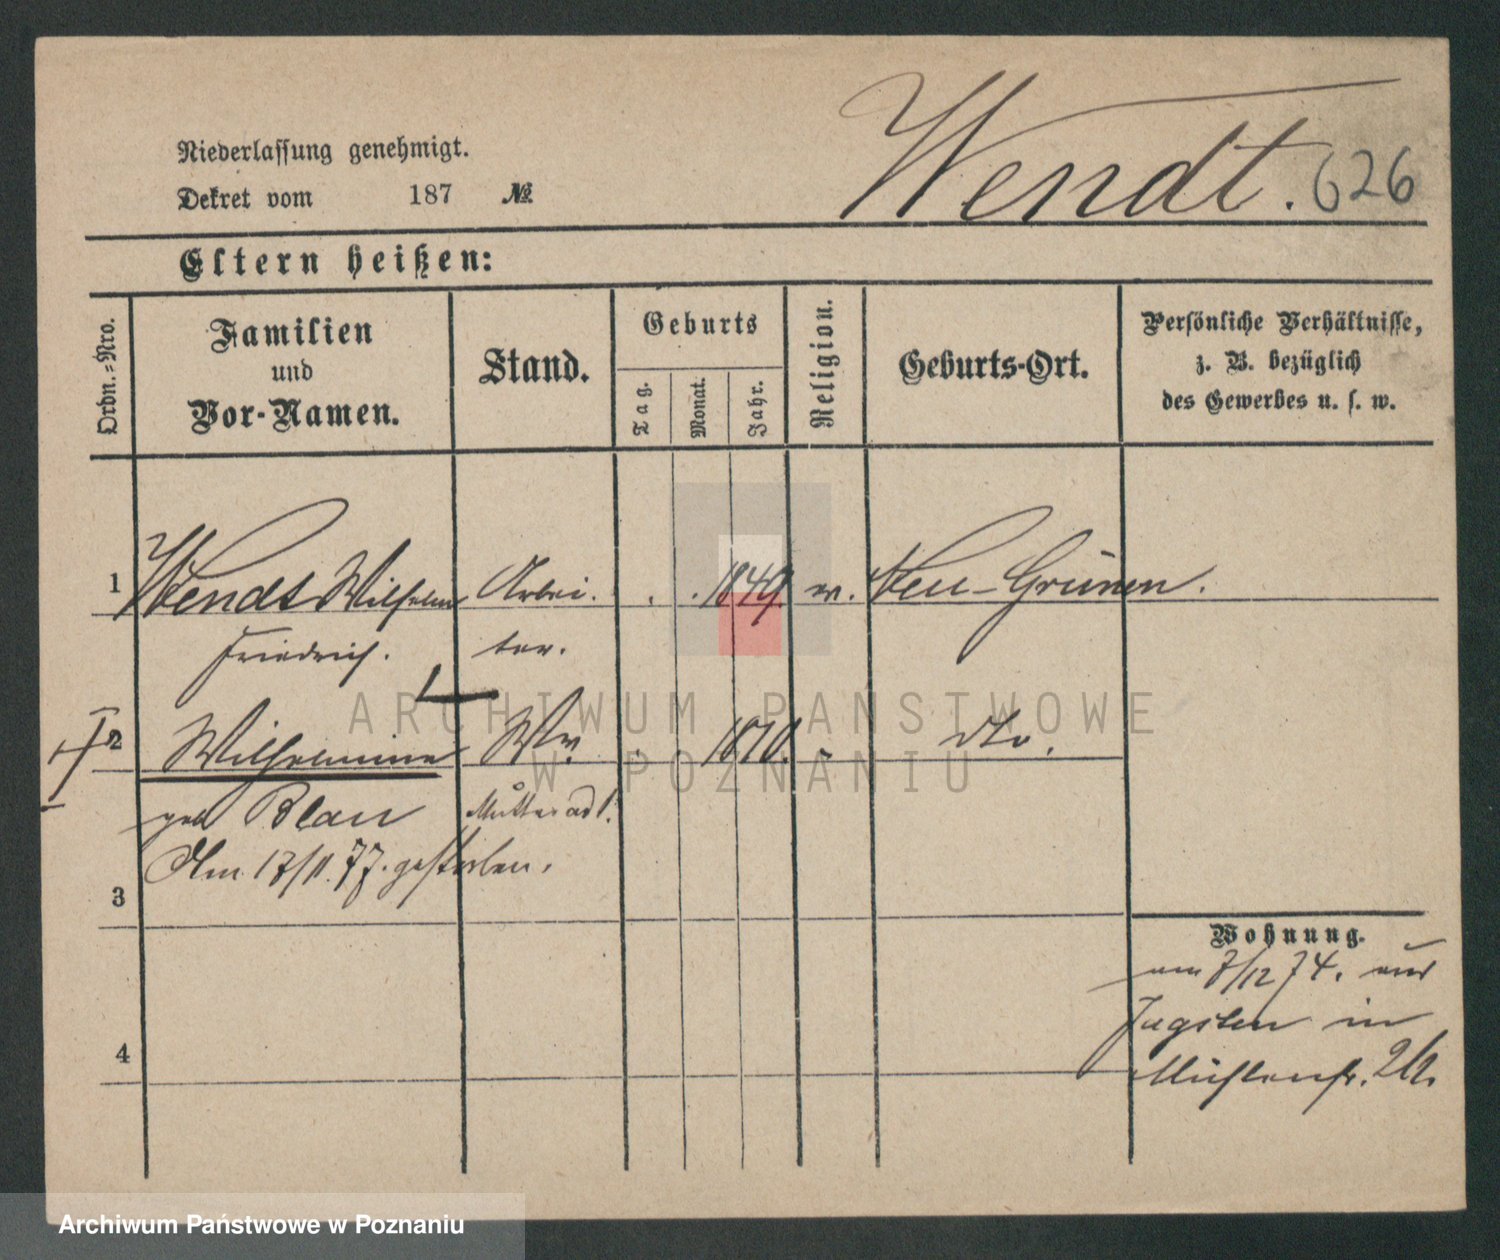 Niederlassung genehmigt.
Dekret vom 187 №
Wendt. 626
Eltern heißen:
Ordn.=Nro.
Familien
und
Vor-Namen.
Stand.
Geburts
Tag.
Monat.
Jahr.
Religion.
Geburts-Ort.
Persönliche Verhältnisse,
z. B. bezüglich
des Gewerbes u. s. w.
1 Wendt Wilhelm Arbei. . . 1849. ev. Neu-Grünen.
Friedrich. ter.
2 Wilhelmine Ww. . 1810. - dto.
geb Blau Mutter ad 1.
Am 17/11. 77. gestorben.
3
Wohnung.
am 7/12 74. aus
in
4
Mühlenstr.
ARCHIWUM PAŃSTWOWE
W POZNANIU
Archiwum Państwowe w Poznaniu